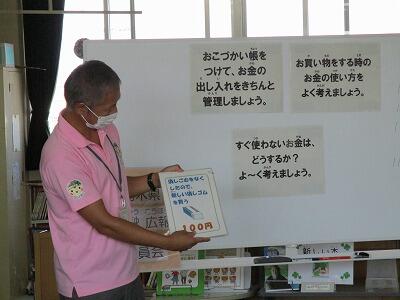 おこづかい帳を
つけて、お金の
出し入れをきちんと
管理しましょう。
お買い物をする時の
お金の使い方を
よく考えましょう。
すぐ使わないお金は、
どうするか？
よ～く考えましょう。
消しごむをなく
したので、
新しい消しゴム
を買う
100円
広報
委員会